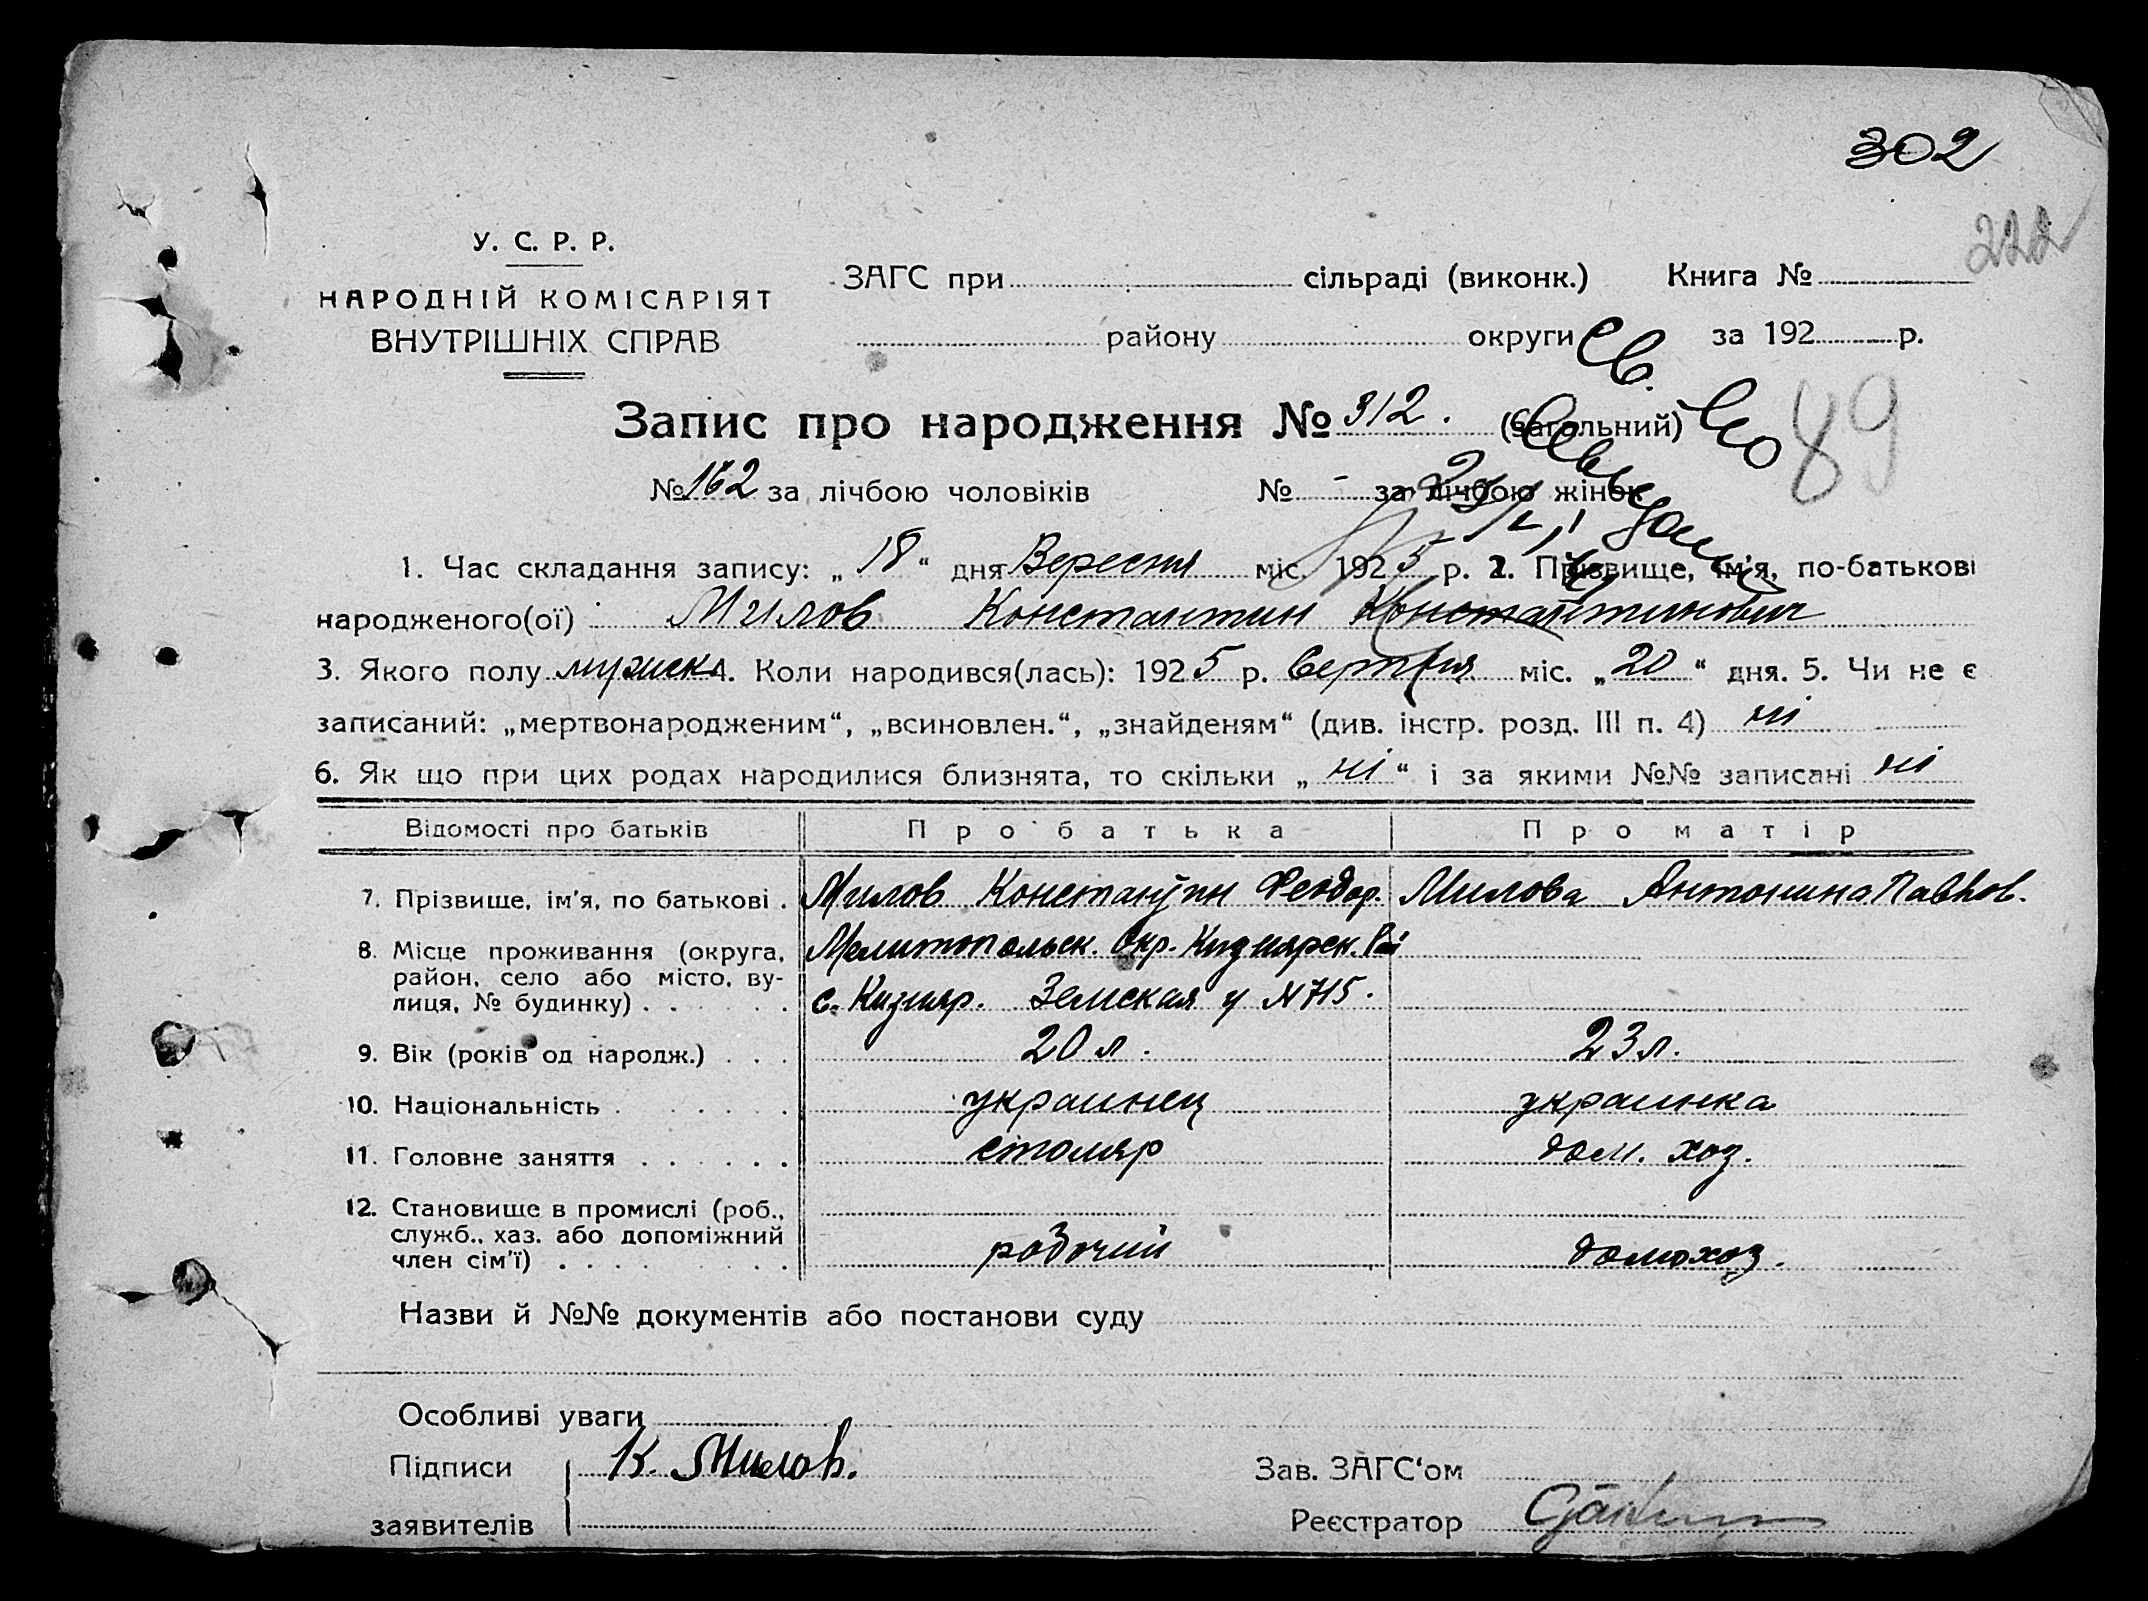 302
222
У. С. Р. Р.
НАРОДНІЙ КОМІСАРІЯТ
ВНУТРІШНІХ СПРАВ
ЗАГС при сільраді (виконк.) Книга №
району округи за 192 р.
Св.
89
Запис про народження № 312. (загальний)
№ 162 за лічбою чоловіків № - за лічбою жінок
1. Час складання запису: „18“ дня Вересня міс. 1925 р. 2. Прізвище, ім'я, по-батькові
народженого(ої) Милов Константин Константинович
3. Якого полу мужеск. 4. Коли народився(лась): 1925 р. міс. „20“ дня. 5. Чи не є
записаний: „мертвонародженим“, „всиновлен.“, „знайденям“ (див. інстр. розд. III п. 4) ні
6. Як що при цих родах народилися близнята, то скільки „ні“ і за якими №№ записані ні
Відомості про батьків Про батька Про матір
7. Прізвище, ім'я, по батькові . Милов Константин Феодор. Милова Антонина Павлов.
8. Місце проживання (округа, Мелитопольск. Окр. Кизиярск. Рай
район, село або місто, ву-
лиця, № будинку) . . . . . с. Кизияр. Земская у №715.
9. Вік (років од народж.) . . . 20 л. 23 л.
10. Національність . . . . . украинец украинка
11. Головне заняття . . . . . столяр дом. хоз.
12. Становище в промислі (роб.,
служб., хаз. або допоміжний
член сім'ї) . . . . . . . . рабочий домохоз.
Назви й №№ документів або постанови суду
Особливі уваги
Підписи К. Милов. Зав. ЗАГС‘ом
заявителів Реєстратор